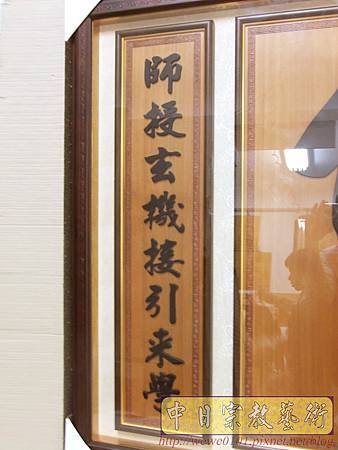 師授玄機接引来學
中日宗教藝術
http://wewe0111.pixnet.net/blog